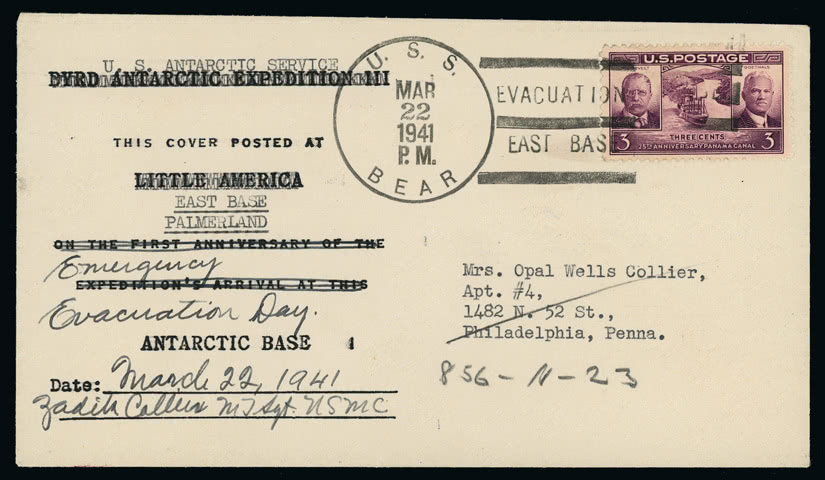 U. S. ANTARCTIC SERVICE
BYRD ANTARCTIC EXPEDITION III
THIS COVER POSTED AT
LITTLE AMERICA
EAST BASE
PALMERLAND
ON THE FIRST ANNIVERSARY OF THE
Emergency
EXPEDITION'S ARRIVAL AT THIS
Evacuation Day.
ANTARCTIC BASE
Date: March 22, 1941
Zadik Collier M T Sgt. USMC
U. S. S.
MAR
22
1941
P. M.
BEAR
EVACUATION
EAST BASE
U.S. POSTAGE
GOETHALS
3 THREE CENTS 3
25TH ANNIVERSARY PANAMA CANAL
Mrs. Opal Wells Collier,
Apt. #4,
1482 N. 52 St.,
Philadelphia, Penna.
856-N-23